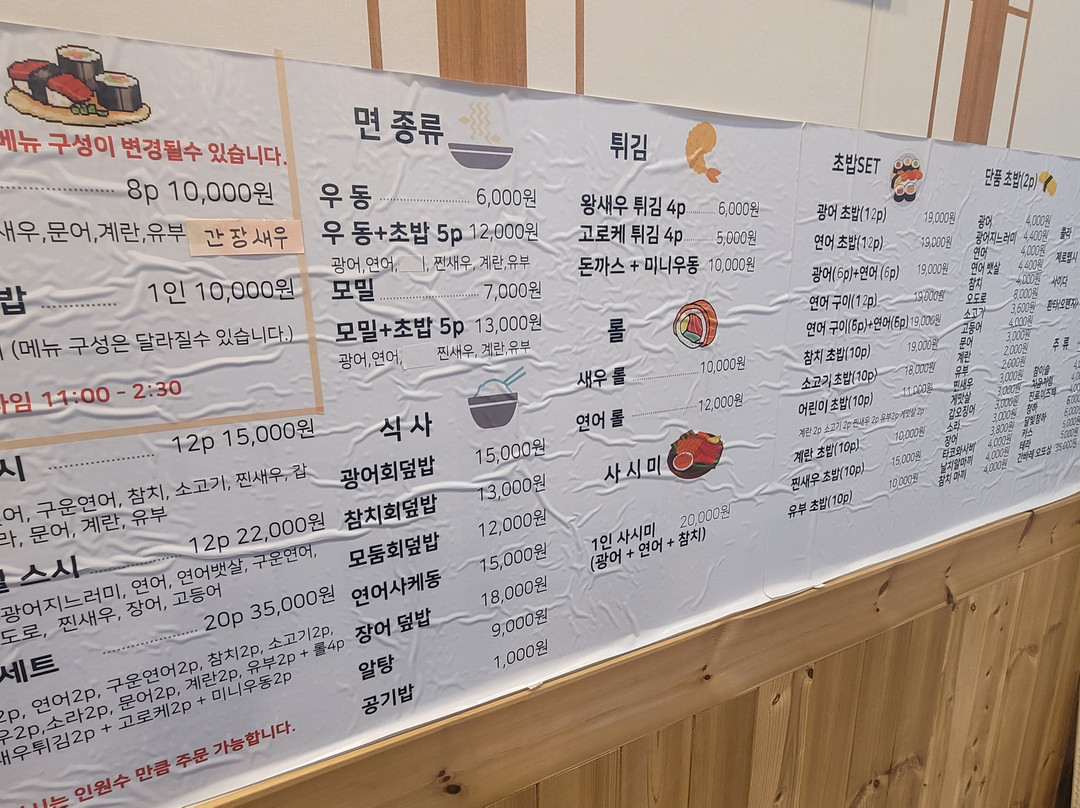 메뉴 구성이 변경될수 있습니다.
8p 10,000원
새우,문어,계란,유부 간장새우
밥 1인 10,000원
(메뉴 구성은 달라질수 있습니다.)
타임 11:00 - 2:30
시 12p 15,000원
구운연어, 참치, 소고기, 찐새우, 갑
라, 문어, 계란, 유부
스시 12p 22,000원
광어지느러미, 연어, 연어뱃살, 구운연어,
도로, 찐새우, 장어, 고등어
20p 35,000원
세트
2p, 연어2p, 구운연어2p, 참치2p, 소고기2p,
우2p,소라2p, 문어2p, 계란2p, 유부2p + 롤4p
새우튀김2p + 고로케2p + 미니우동2p
시는 인원수 만큼 주문 가능합니다.
면 종류
우동 6,000원
우동+초밥 5p 12,000원
광어,연어, 찐새우, 계란,유부
모밀 7,000원
모밀+초밥 5p 13,000원
광어,연어, 찐새우, 계란,유부
식사
광어회덮밥 15,000원
참치회덮밥 13,000원
모둠회덮밥 12,000원
연어사케동 15,000원
장어 덮밥 18,000원
알탕 9,000원
공기밥 1,000원
튀김
왕새우 튀김 4p 6,000원
고로케 튀김 4p 5,000원
돈까스 + 미니우동 10,000원
롤
새우 롤 10,000원
연어 롤 12,000원
사시미
1인 사시미 20,000원
(광어 + 연어 + 참치)
초밥SET
광어 초밥(12p) 19,000원
연어 초밥(12p) 19,000원
광어(6p)+연어(6p) 19,000원
연어 구이(12p) 19,000원
연어 구이(6p)+연어(6p) 19,000원
참치 초밥(10p) 19,000원
소고기 초밥(10p) 18,000원
어린이 초밥(10p) 11,000원
계란 2p 소고기 2p 찐새우 2p 유부2p 게맛살 2p
계란 초밥(10p) 10,000원
찐새우 초밥(10p) 15,000원
유부 초밥(10p) 10,000원
단품 초밥(2p)
광어 4,000원
광어지느러미 4,400원
연어 4,000원
연어 뱃살 4,400원
참치 4,000원
오도로 8,000원
소고기 3,600원
고등어 4,000원
문어 3,000원
계란 2,000원
유부 2,000원
찐새우 3,000원
게맛살
갑오징어
소라
장어
타코와사비
날치알마끼
참치 마끼 4,000원
콜라
제로펩시
사이다
주 류
참이슬
처음처럼
진로이즈백
청하
별빛청하
카스
테라